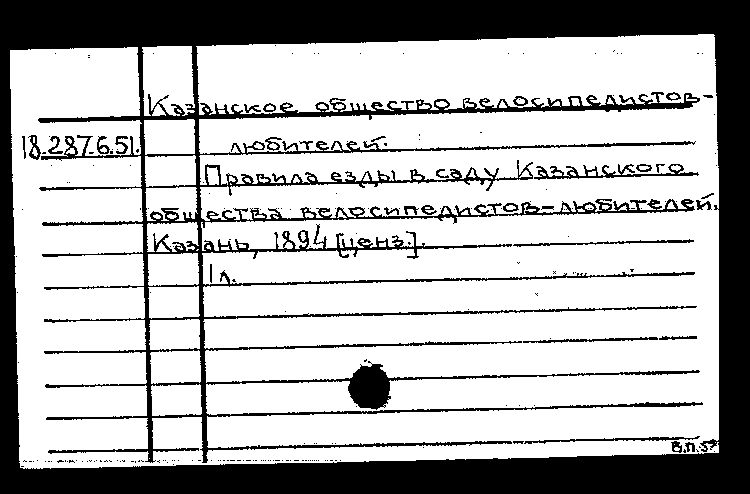 Казанское общество велосипедистов-
18.287.6.51. любителей.
Правила езды в саду Казанского
общества велосипедистов-любителей.
Казань, 1894 [ценз.].
1 л.
В.П.57